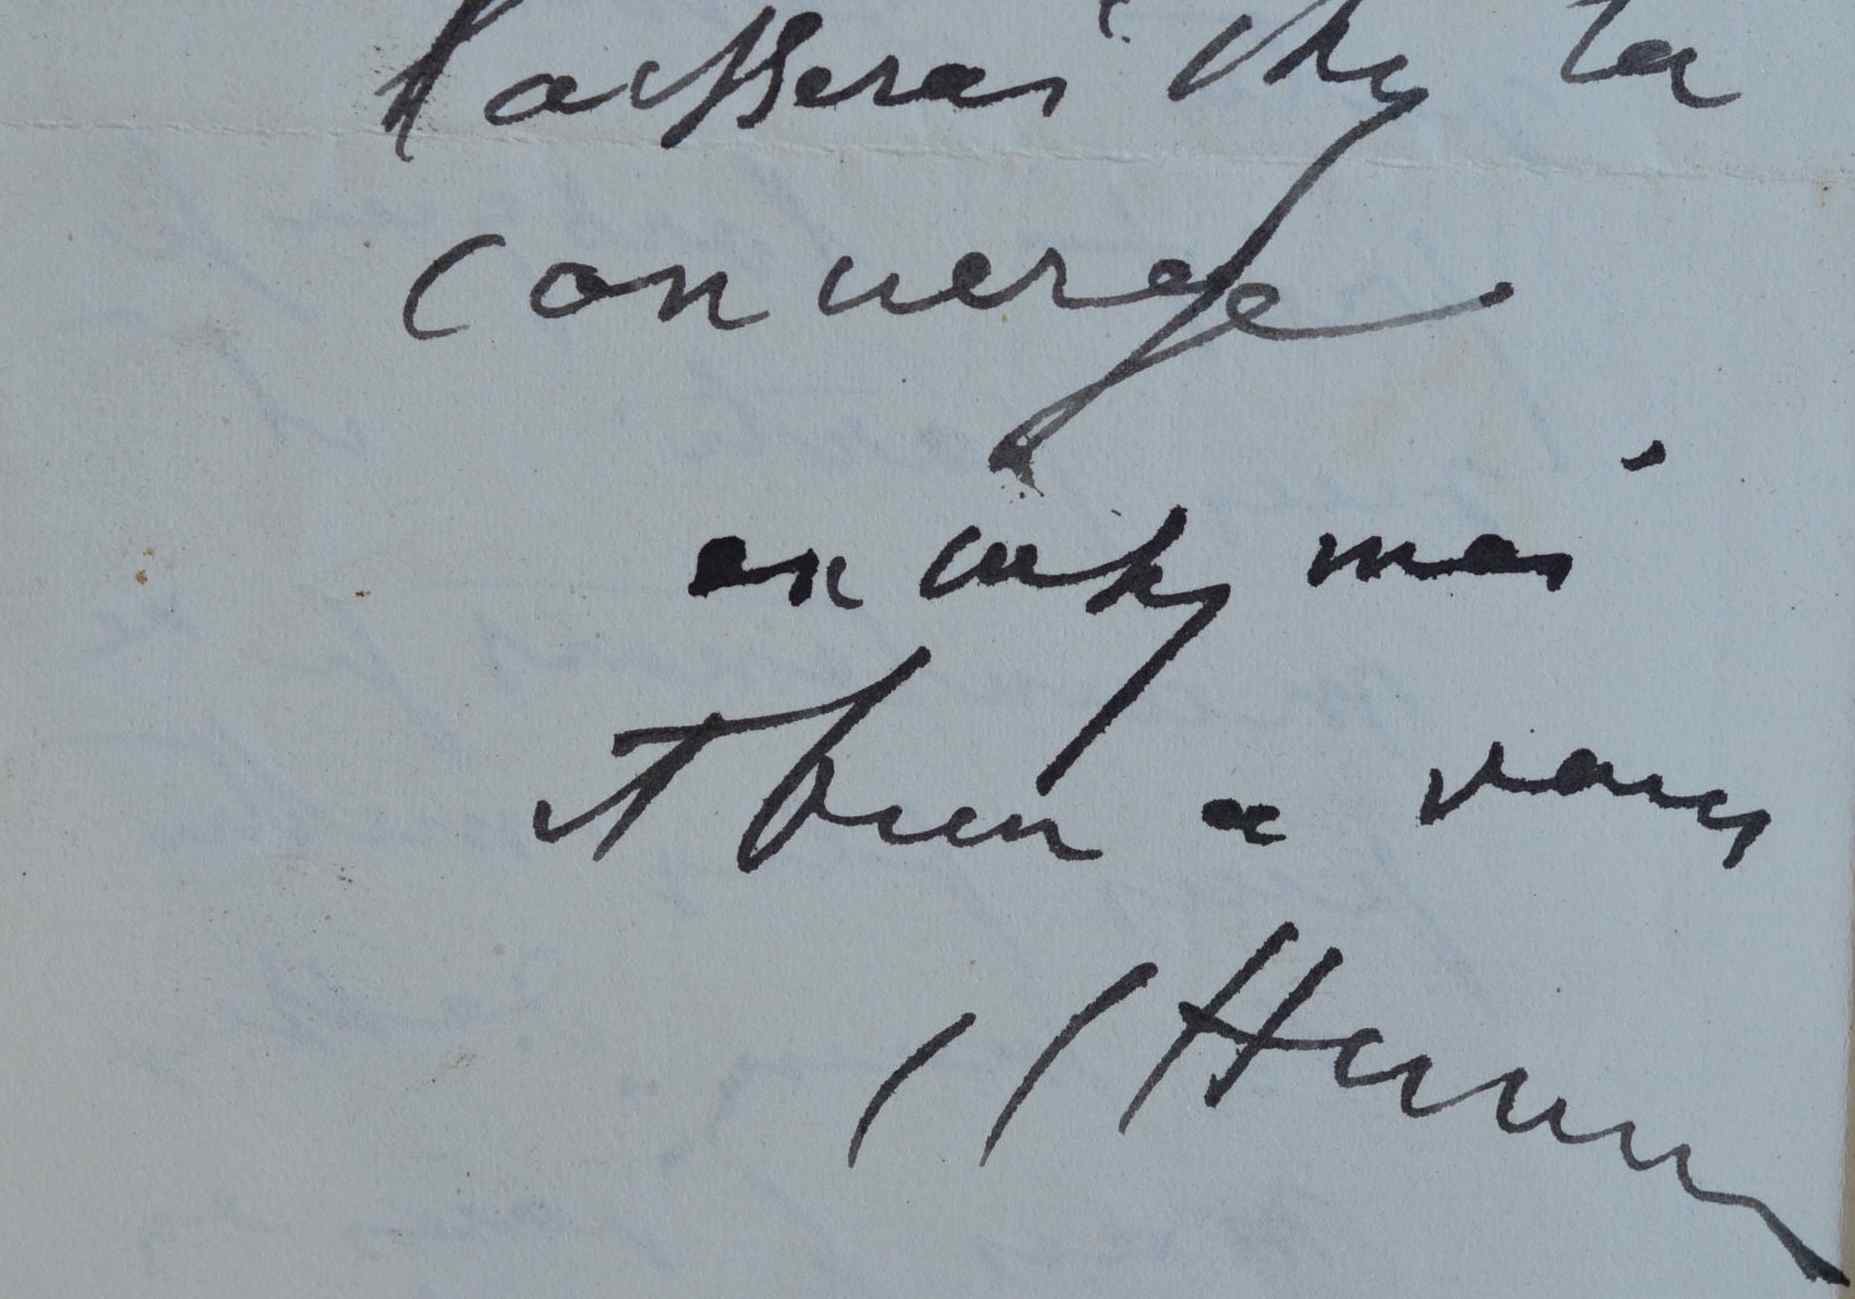 laisserai chez la
concierge
excusez moi
et bien à vous